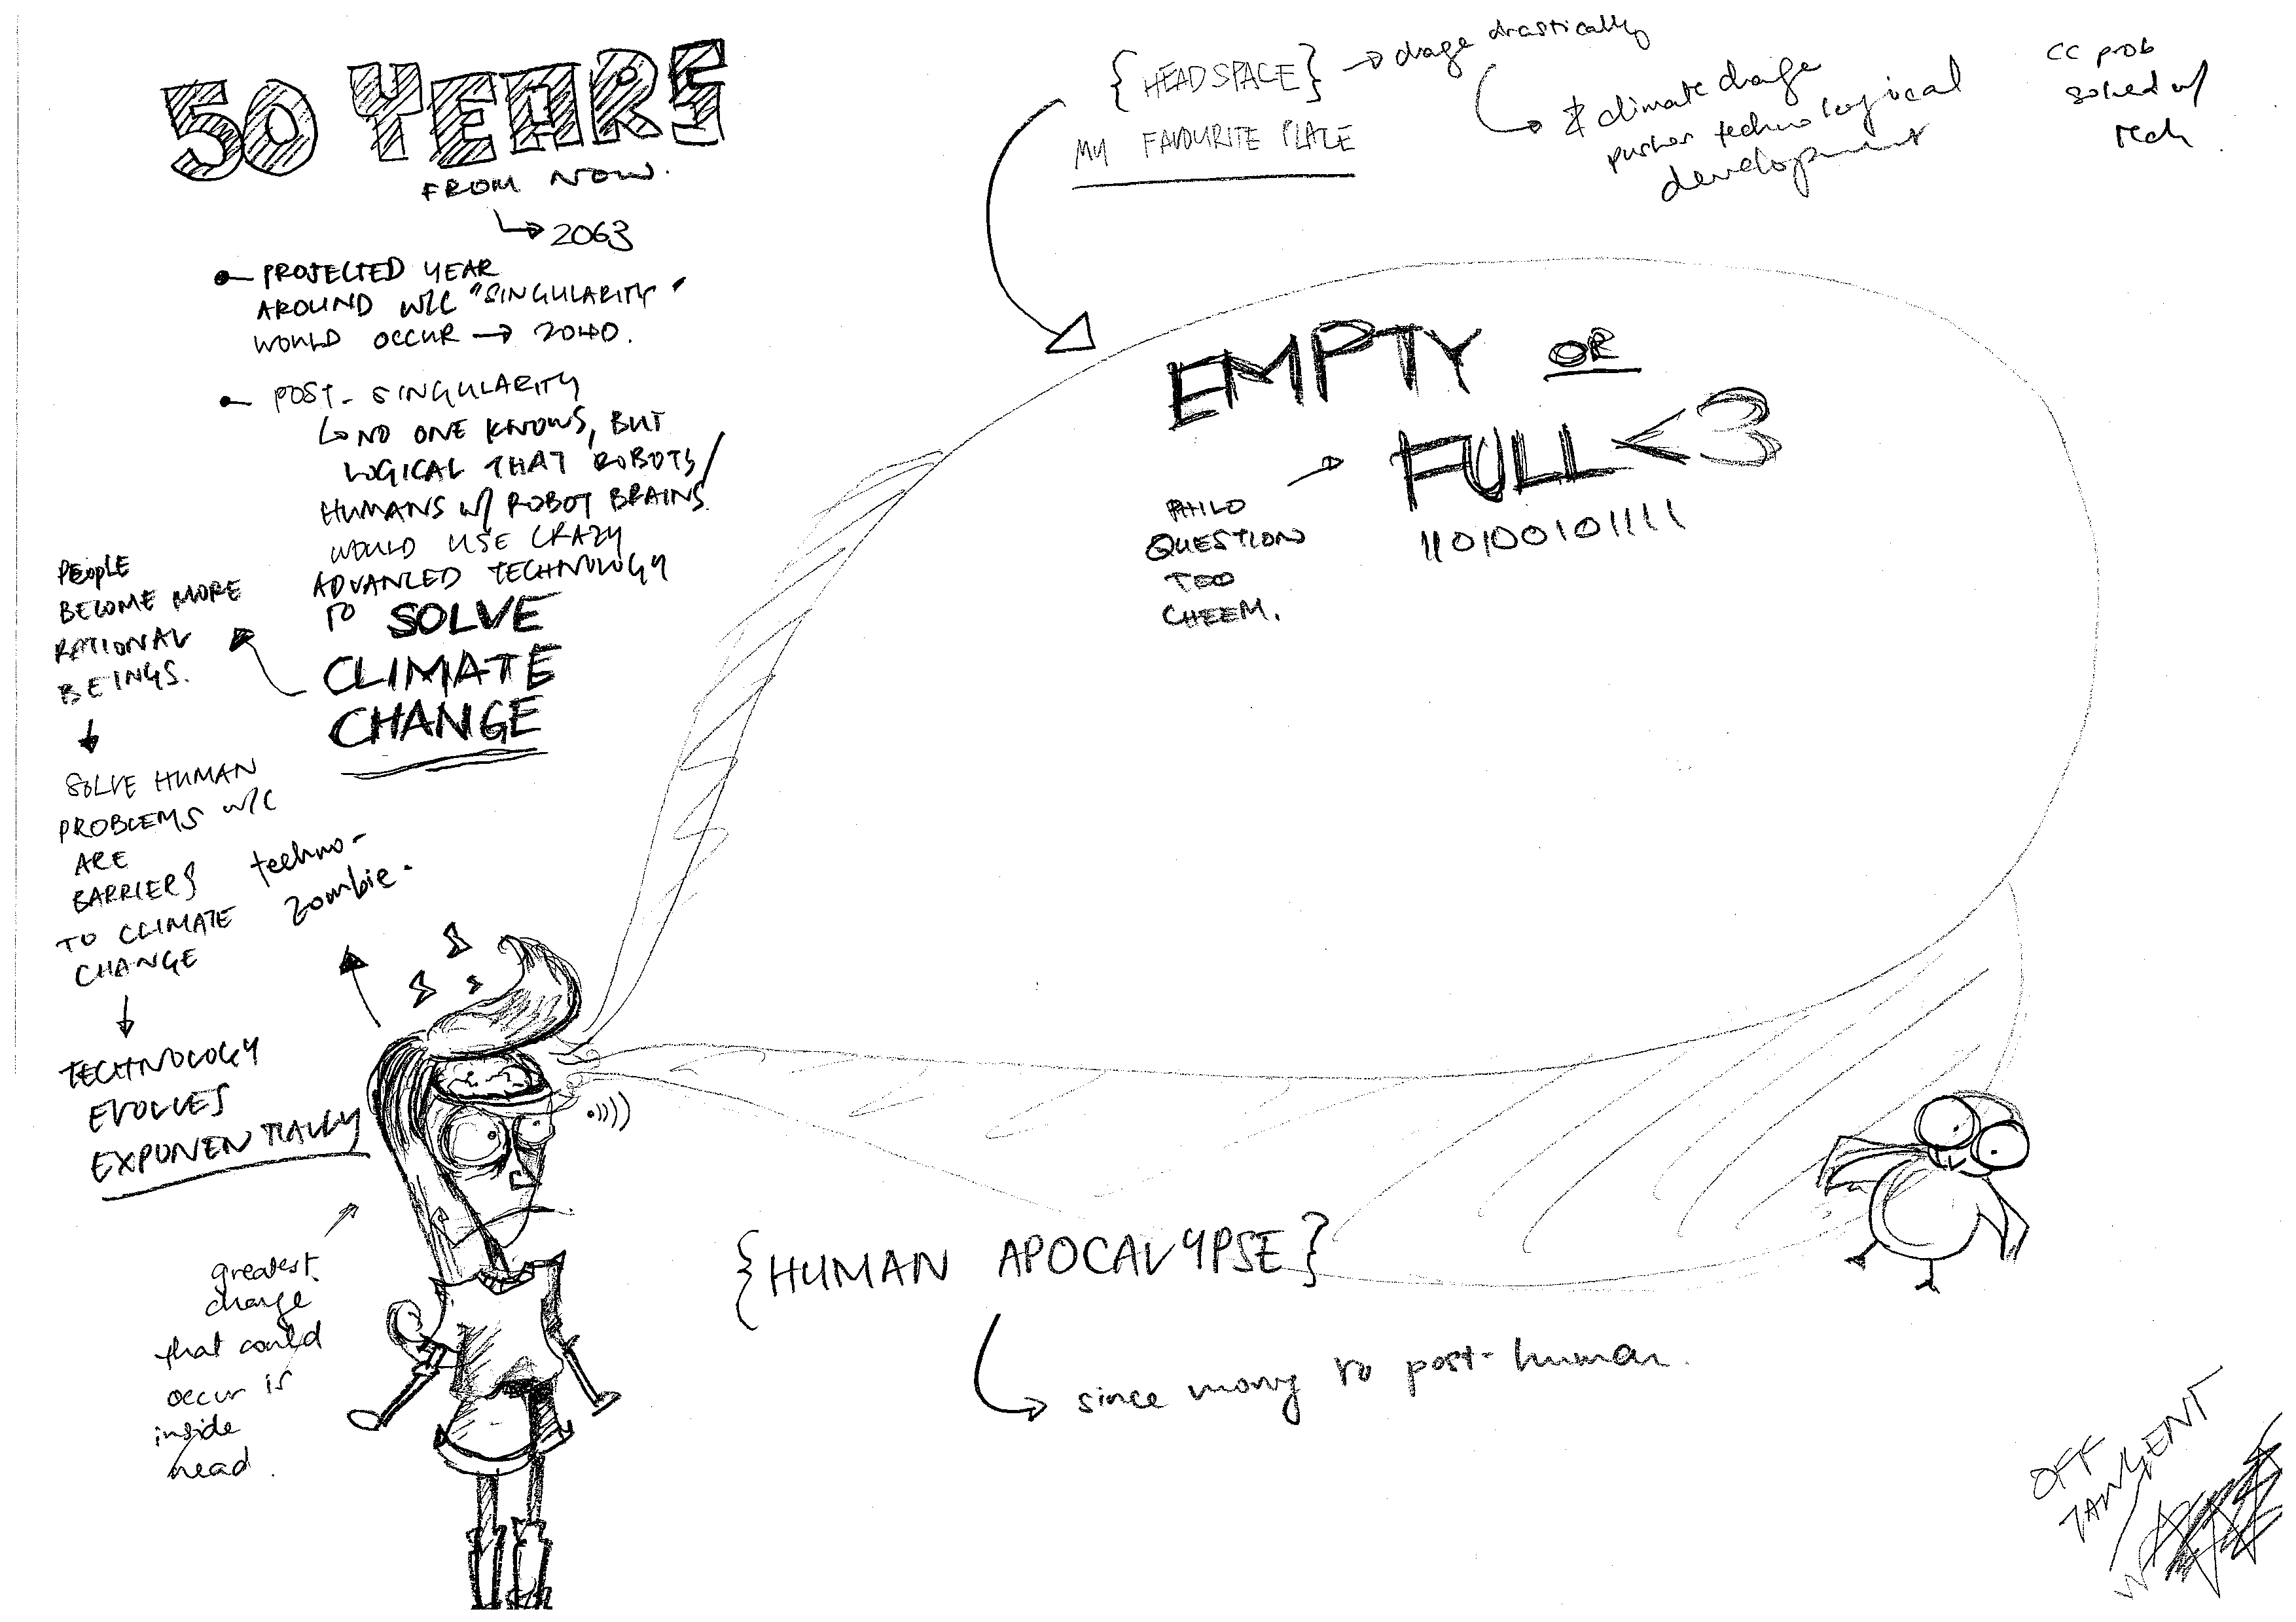 50 YEARS
FROM NOW.
2063
PROJECTED YEAR
AROUND W/C "SINGULARITY"
WOULD OCCUR → 2040.
POST-SINGULARITY
NO ONE KNOWS, BUT
LOGICAL THAT ROBOTS/
HUMANS W/ ROBOT BRAINS
WOULD USE CRAZY
ADVANCED TECHNOLOGY
TO SOLVE
CLIMATE
CHANGE
PEOPLE
BECOME MORE
RATIONAL
BEINGS.
SOLVE HUMAN
PROBLEMS W/C
ARE
BARRIERS
TO CLIMATE
CHANGE
TECHNOLOGY
EVOLVES
EXPONENTIALLY
techno-
zombie.
greatest
change
that could
occur is
inside
head.
{HEADSPACE} → change drastically
MY FAVOURITE PLACE
climate change
pushes technological
development
CC prob
solved w/
tech.
EMPTY OR
FULL <3
110100101111
PHILO
QUESTION
TOO
CHEEM.
{HUMAN APOCALYPSE}
since moving to post-human.
OFF
TANGENT